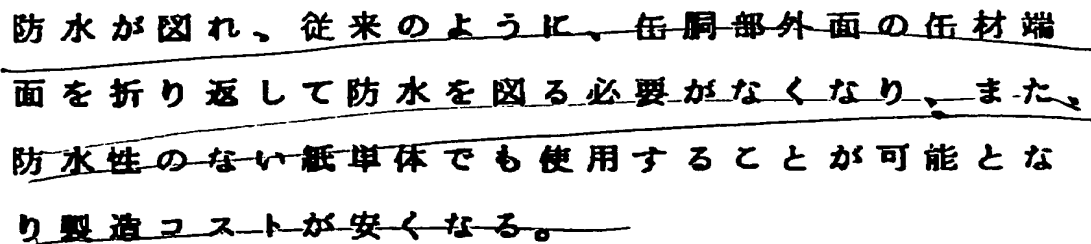 防水が図れ、従来のように、缶胴部外面の缶材端
面を折り返して防水を図る必要がなくなり、また、
防水性のない紙単体でも使用することが可能とな
り製造コストが安くなる。